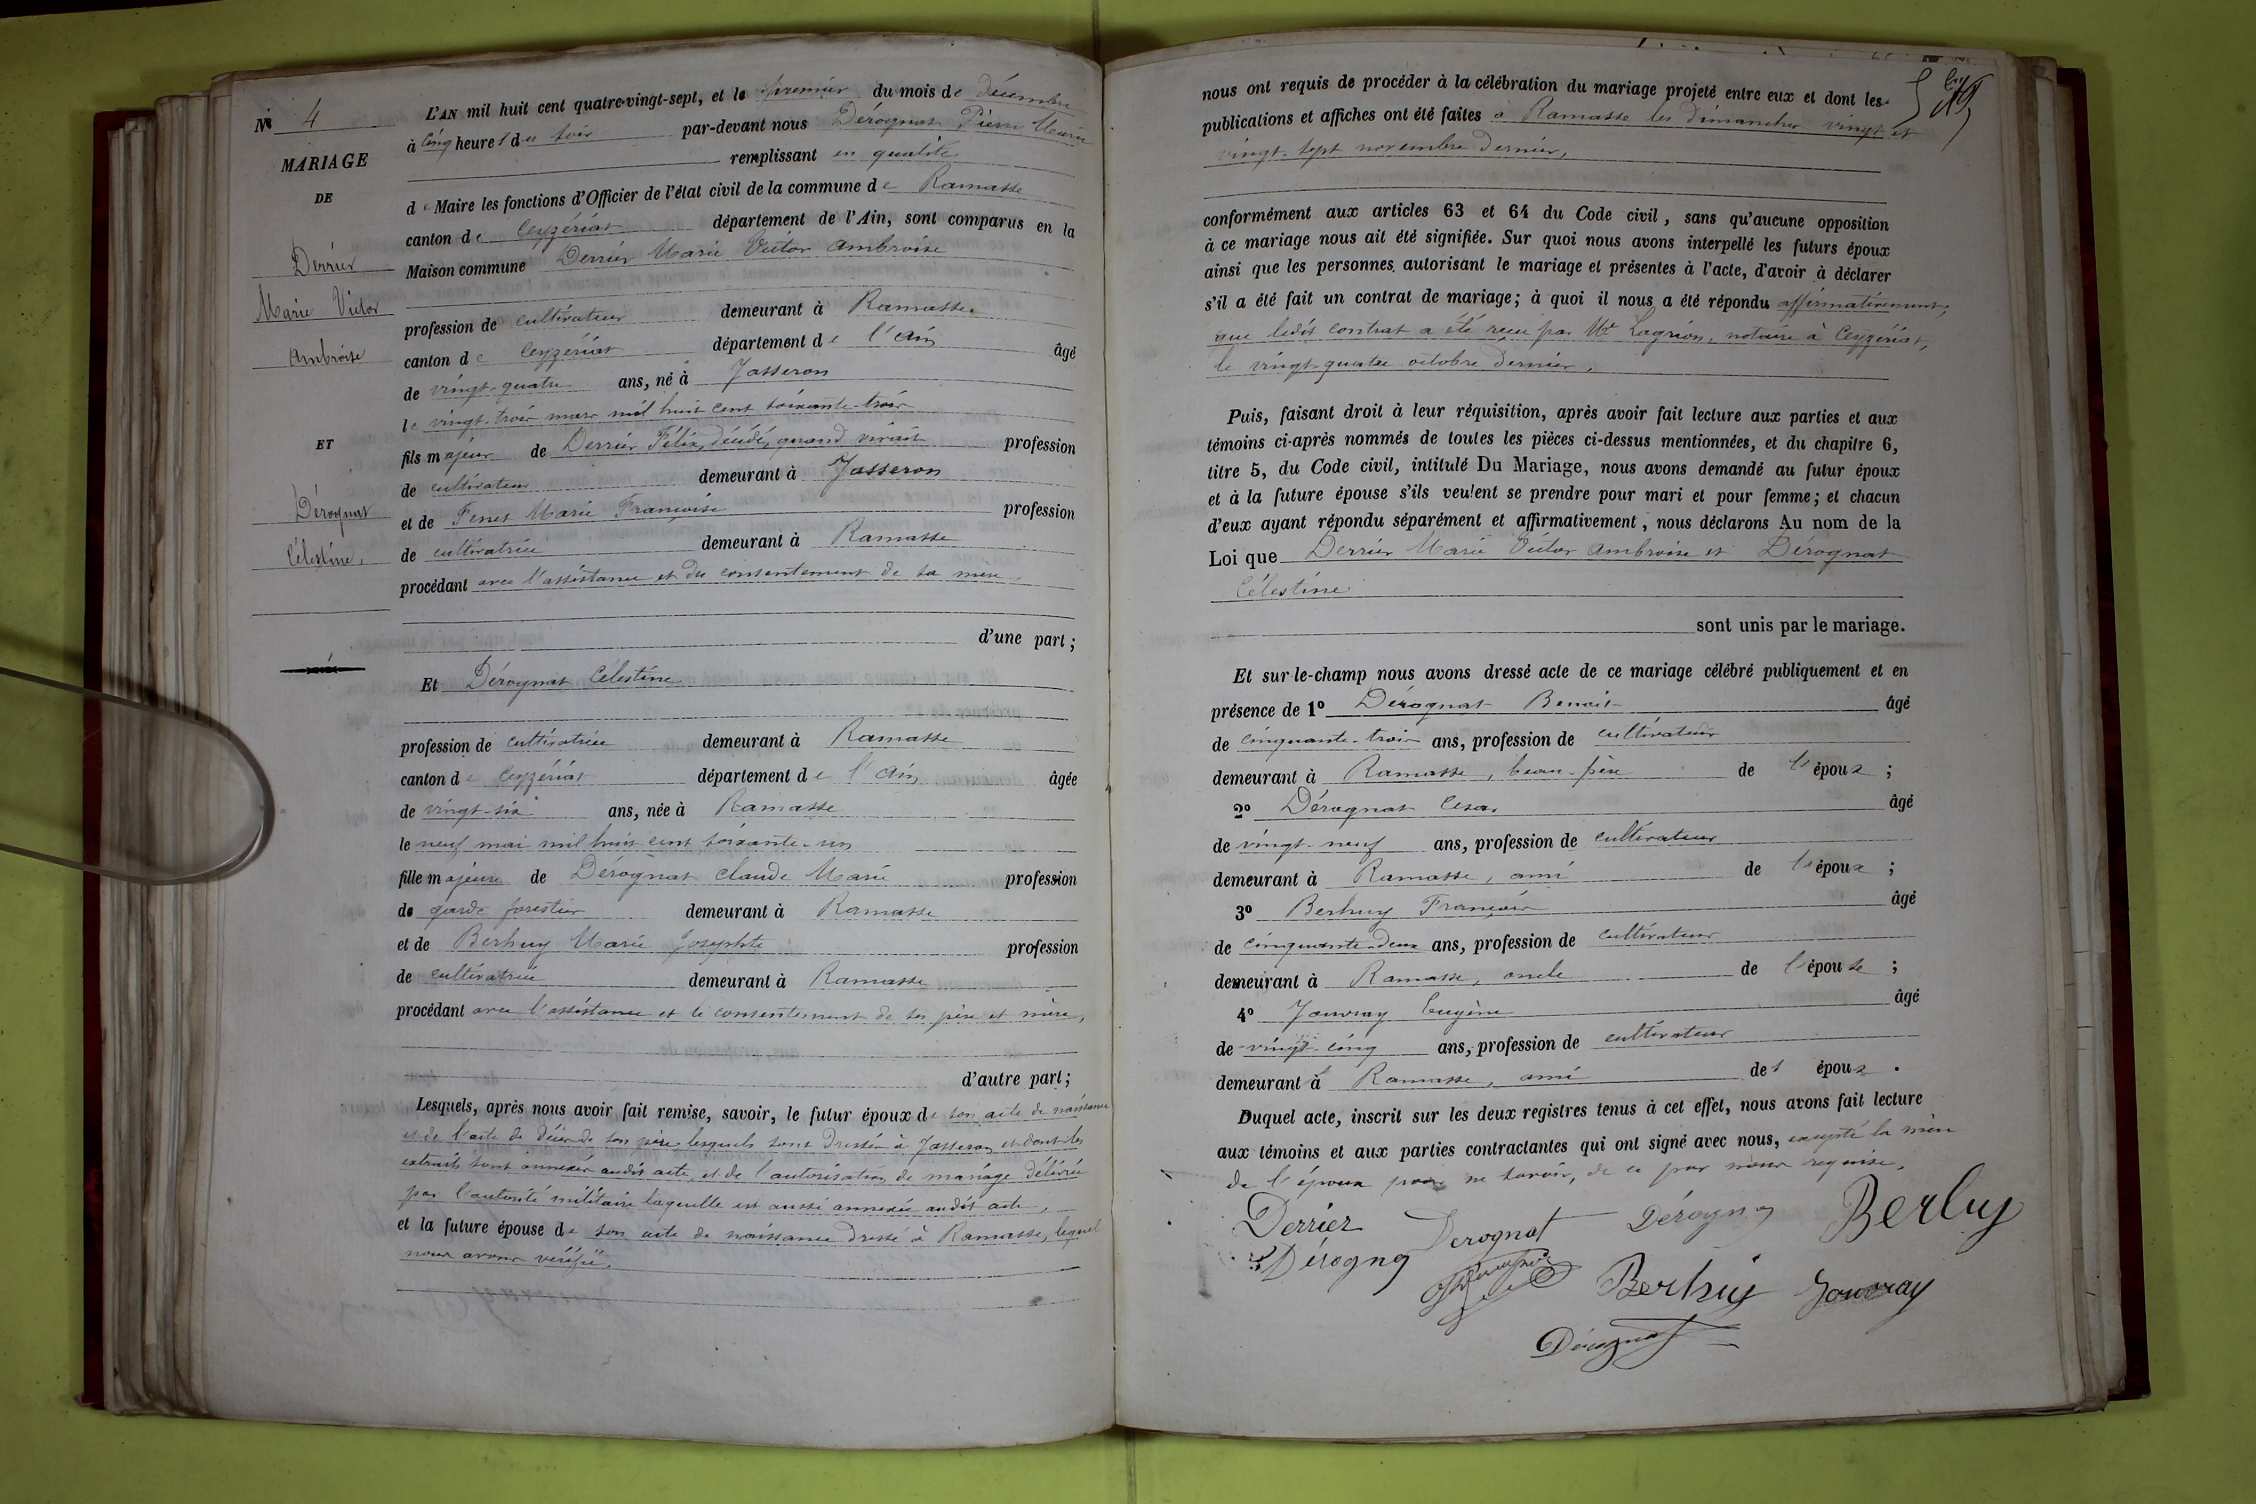 № 4
MARIAGE
DE
Derrier
Marie Victor
Ambroise
ET
Dérognat
Célestine,
L'AN mil huit cent quatre-vingt-sept, et le premier du mois de décembre
à cinq heures du soir par-devant nous Dérognat Pierre Marie
remplissant en qualité
de Maire les fonctions d'Officier de l'état civil de la commune de Ramasse
canton de Ceyzériat département de l'Ain, sont comparus en la
Maison commune Derrier Marie Victor Ambroise
profession de cultivateur demeurant à Ramasse
canton de Ceyzériat département de l'Ain âgé
de vingt-quatre ans, né à Jasseron
le vingt-trois mars mil huit cent soixante-trois
fils majeur de Derrier Félix, décédé, quand vivait profession
de cultivateur demeurant à Jasseron
et de Fenet Marie Françoise profession
de cultivatrice demeurant à Ramasse
procédant avec l'assistance et du consentement de sa mère,
d'une part;
Et Dérognat Célestine
profession de cultivatrice demeurant à Ramasse
canton de Ceyzériat département de l'Ain âgée
de vingt-six ans, née à Ramasse
le neuf mai mil huit cent soixante-un
fille majeure de Dérognat Claude Marie profession
de garde forestier demeurant à Ramasse
et de Berhuy Marie Josephte profession
de cultivatrice demeurant à Ramasse
procédant avec l'assistance et le consentement de ses père et mère,
d'autre part;
Lesquels, après nous avoir fait remise, savoir, le futur époux de son acte de naissance
et de l'acte de décès de son père, lesquels sont dressés à Jasseron et dont les
extraits sont annexés audit acte, et de l'autorisation de mariage délivrée
par l'autorité militaire laquelle est aussi annexée audit acte,
et la future épouse de son acte de naissance dressé à Ramasse, lequel
nous avons vérifié.
nous ont requis de procéder à la célébration du mariage projeté entre eux et dont les
publications et affiches ont été faites à Ramasse les dimanches vingt et
vingt-sept novembre dernier,
conformément aux articles 63 et 64 du Code civil, sans qu'aucune opposition
à ce mariage nous ait été signifiée. Sur quoi nous avons interpellé les futurs époux
ainsi que les personnes autorisant le mariage et présentes à l'acte, d'avoir à déclarer
s'il a été fait un contrat de mariage; à quoi il nous a été répondu affirmativement,
que ledit contrat a été reçu par Me Lagrion, notaire à Ceyzériat,
le vingt-quatre octobre dernier.
Puis, faisant droit à leur réquisition, après avoir fait lecture aux parties et aux
témoins ci-après nommés de toutes les pièces ci-dessus mentionnées, et du chapitre 6,
titre 5, du Code civil, intitulé Du Mariage, nous avons demandé au futur époux
et à la future épouse s'ils veulent se prendre pour mari et pour femme; et chacun
d'eux ayant répondu séparément et affirmativement, nous déclarons Au nom de la
Loi que Derrier Marie Victor Ambroise et Dérognat
Célestine
sont unis par le mariage.
Et sur-le-champ nous avons dressé acte de ce mariage célébré publiquement et en
présence de 1° Dérognat Benoit âgé
de cinquante-trois ans, profession de cultivateur
demeurant à Ramasse, beau-père de l'époux;
2° Dérognat Cesar âgé
de vingt-neuf ans, profession de cultivateur
demeurant à Ramasse, ami de l'époux;
3° Berhuy François âgé
de cinquante-deux ans, profession de cultivateur
demeurant à Ramasse, oncle de l'épouse;
4° Jouvray Eugène âgé
de vingt-cinq ans, profession de cultivateur
demeurant à Ramasse, ami des époux.
Duquel acte, inscrit sur les deux registres tenus à cet effet, nous avons fait lecture
aux témoins et aux parties contractantes qui ont signé avec nous, excepté la mère
de l'époux pour ne savoir, de ce par nous requise.
Derrier Derognat Dérognat Berhuy
Dérognat
Berhuy Jouvray
Dérognat